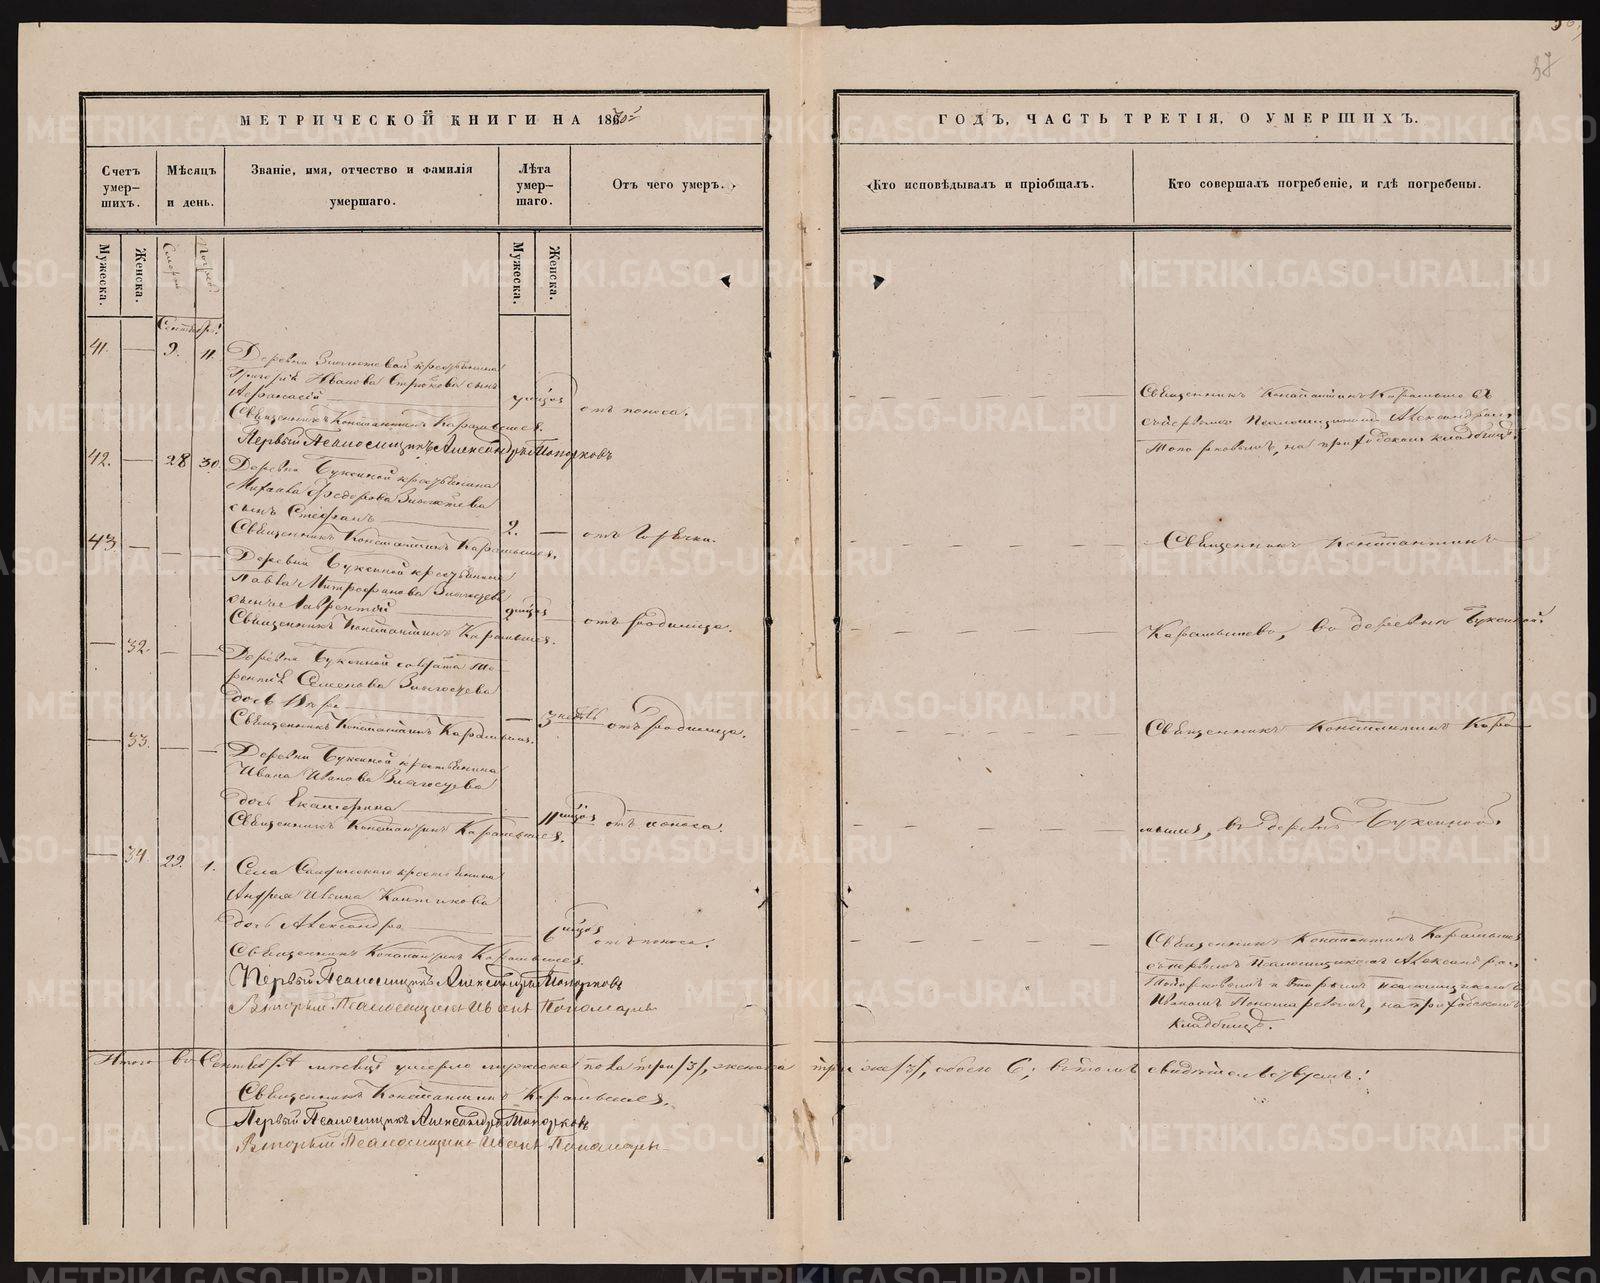 57
МЕТРИЧЕСКОЙ КНИГИ НА 1870й
ГОДЪ, ЧАСТЬ ТРЕТІЯ, О УМЕРШИХЪ.
Счетъ умер-шихъ.
Мѣсяцъ и день.
Званіе, имя, отчество и фамилія умершаго.
Лѣта умер-шаго.
Отъ чего умеръ.
Кто исповѣдывалъ и пріобщалъ.
Кто совершалъ погребеніе, и гдѣ погребены.
Мужеска.
Женска.
Смерти
Погреб.
Мужеска.
Женска.
Сентябрь!
41. — 9. 11. Деревни крестьянина
Григорія Иванова сынъ
Аѳанасій
отъ поноса.
Священникъ Константинъ Карамышевъ.
Первый Псаломщикъ Александръ Топорковъ
Священникъ Константинъ Карамышевъ съ
первымъ Псаломщикомъ Александромъ
Топорковымъ, на приходскомъ кладбищѣ.
42. — 28 30. Деревни Букеиной крестьянина
Михаила Федорова
сынъ Стефанъ 2. — отъ горячки.
Священникъ Константинъ Карамышевъ.
Священникъ Константинъ
43. — — — Деревни Букеиной крестьянина
Павла Митрофанова
сынъ Лаврентій
отъ родимца.
Священникъ Константинъ Карамышевъ.
Карамышевъ, въ деревнѣ Букеиной.
— 32. — — Деревни Букеиной солдата
Семенова
дочь
— 3 недѣль отъ родимца.
Священникъ Константинъ Карамышевъ.
Священникъ Константинъ Кара-
— 33. — — Деревни Букеиной крестьянина
Ивана Иванова
дочь Екатерина
отъ поноса.
Священникъ Константинъ Карамышевъ.
мышевъ, въ деревнѣ Букеиной.
— 34. 29. 1. Села крестьянина
Андрея
дочь Александра
отъ поноса.
Священникъ Константинъ Карамышевъ.
Первый Псаломщикъ Александръ Топорковъ
Вторый Псаломщикъ Иванъ Пономарев
Священникъ Константинъ Карамышевъ
съ первымъ Псаломщикомъ Александромъ
Топорковымъ и вторымъ псаломщикомъ
Иваномъ Пономаревымъ, на приходскомъ
кладбищѣ.
Итого въ Сентябрѣ мѣсяцѣ умерло мужеска пола три /3/, женска три же /3/, обоего 6; въ томъ свидѣтельствуемъ:
Священникъ Константинъ Карамышевъ.
Первый Псаломщикъ Александръ Топорковъ
Вторый Псаломщикъ Иванъ Пономарев
METRIKI.GASO-URAL.RU